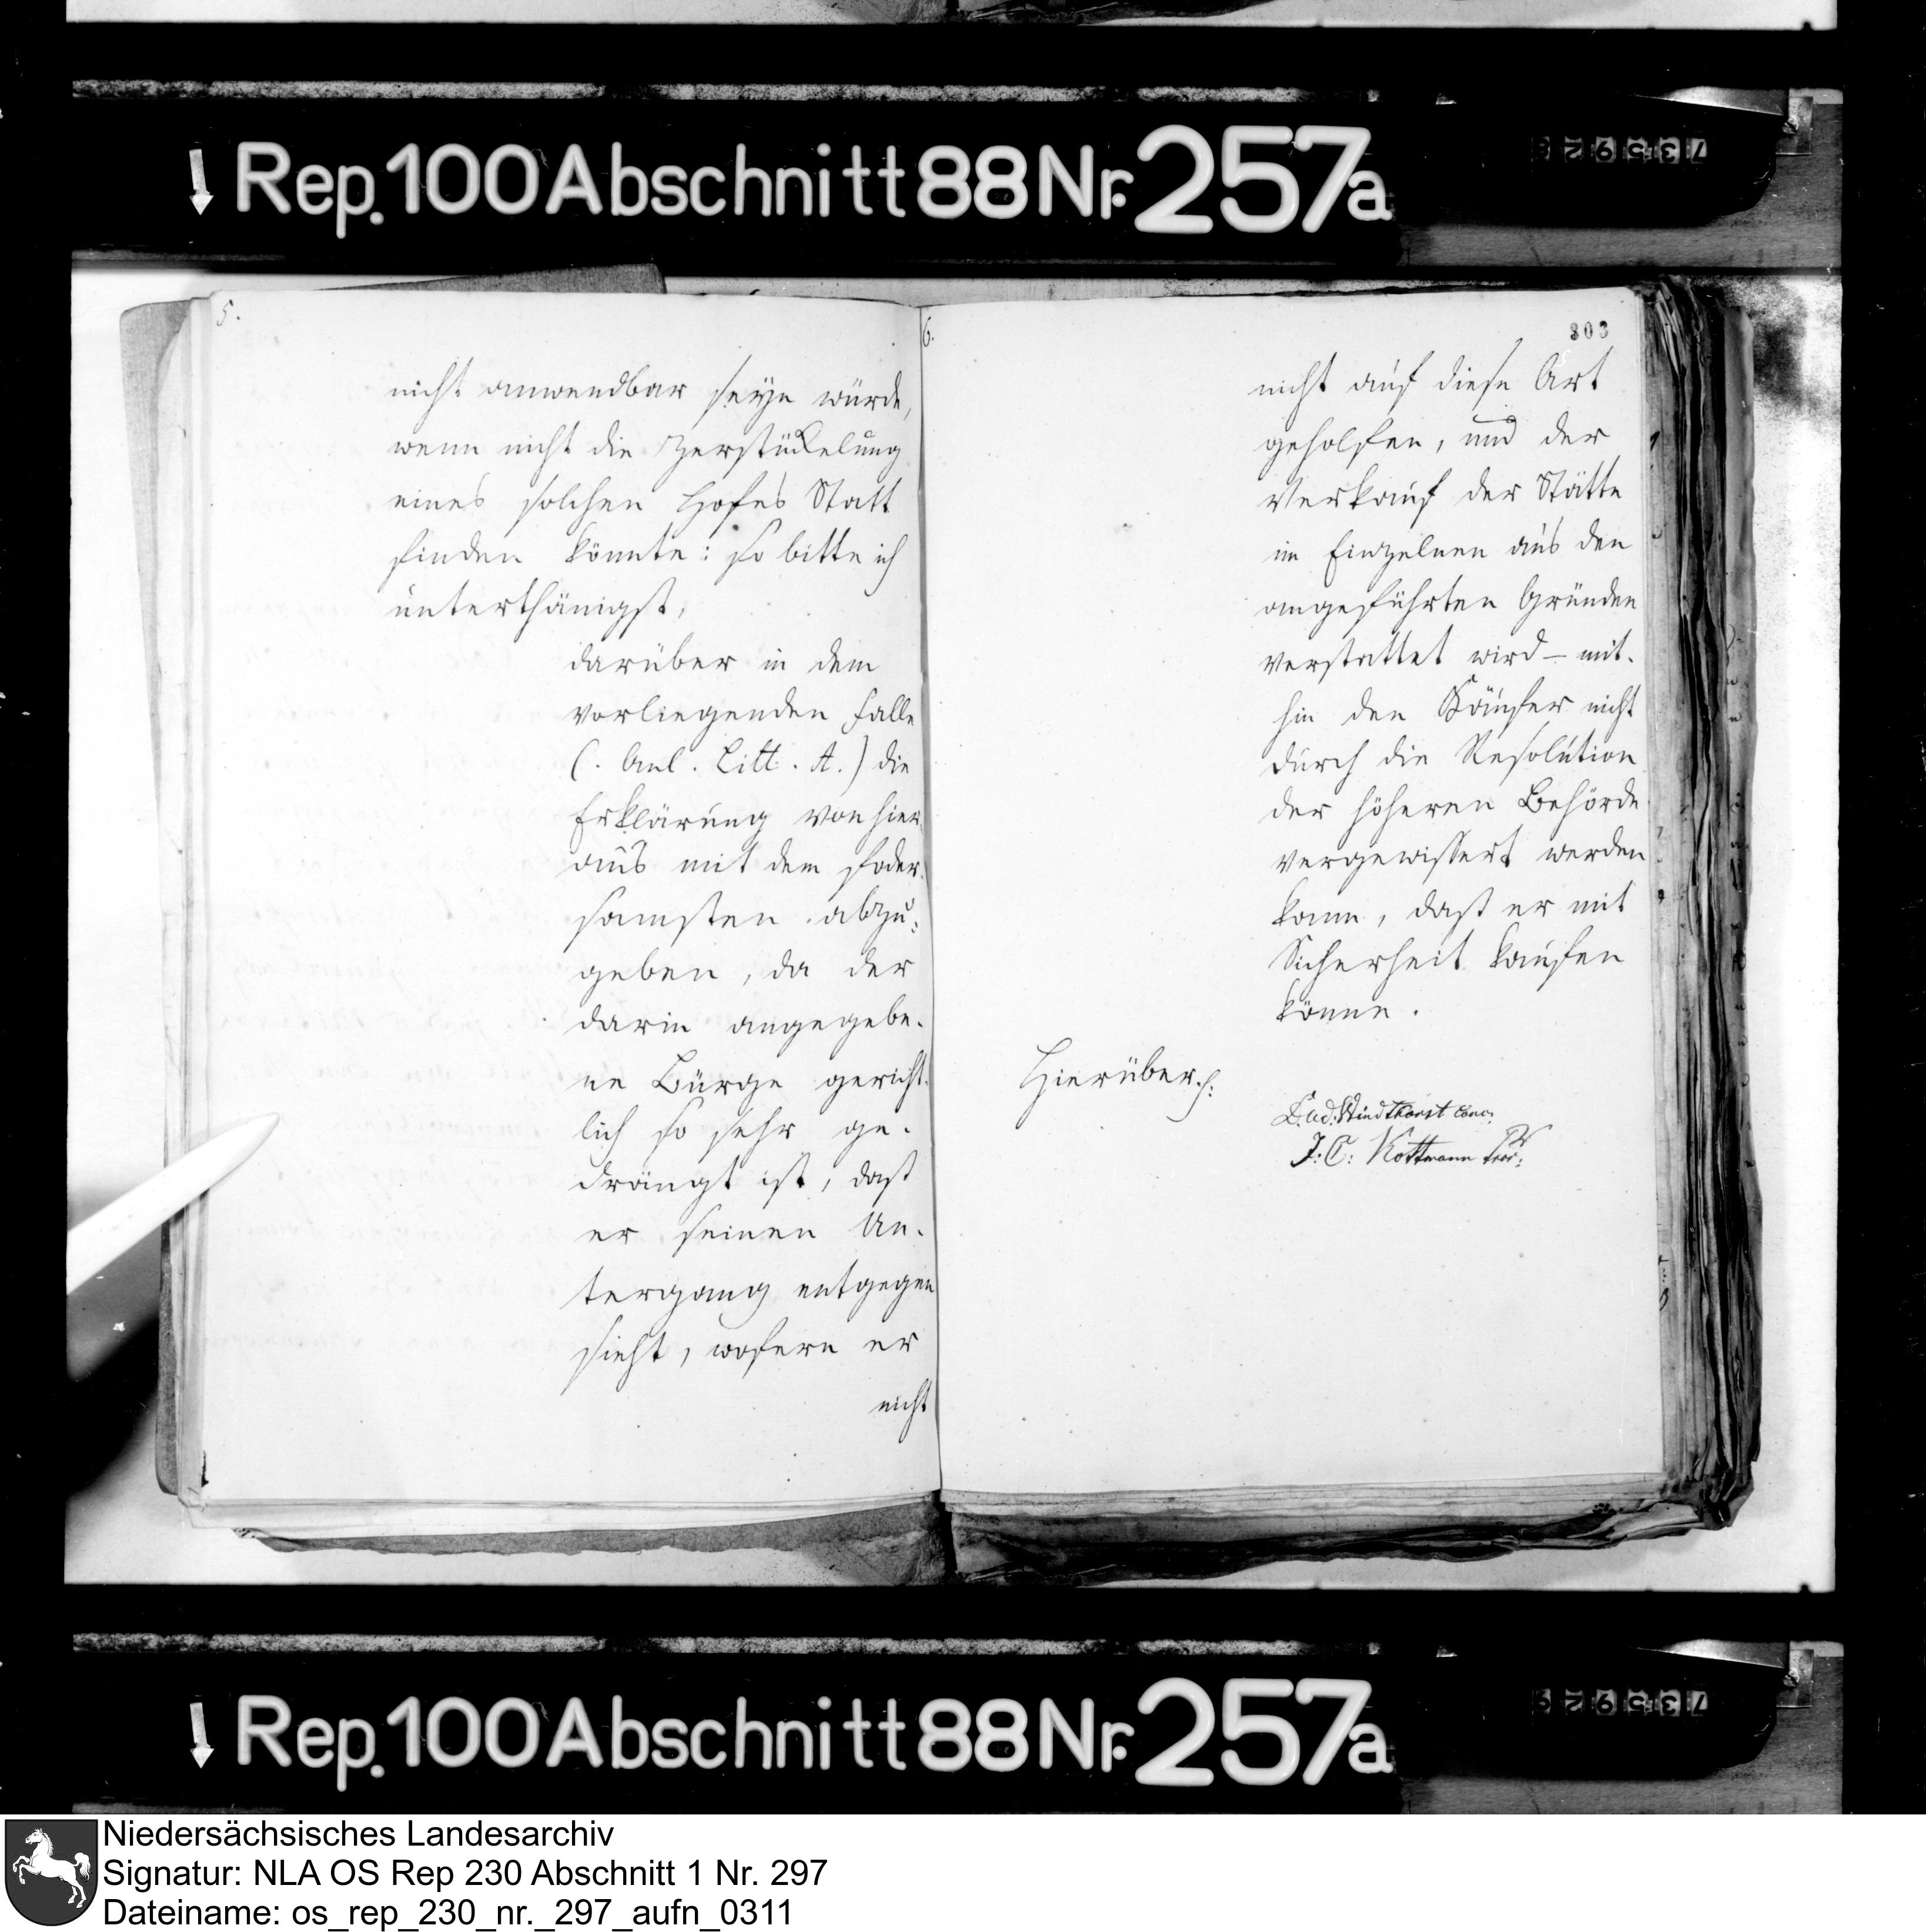 Rep. 100 Abschnitt 88 Nr. 257a
5.
nicht anwendbar seyn würde,
wenn nicht die Zerstückelung
eines solchen Hofes Statt
finden könnte: so bitte ich
unterthänigst,
darüber in dem
vorliegenden Falle
(. Anl. Litt. A.) die
Erklärung von hier
aus mit dem foder-
samsten abzu-
geben, da der
darin angegebe-
ne Bürge gericht-
lich so sehr ge-
drängt ist, daß
er seinen Un-
tergang entgegen
sieht, wofern er
nicht
6.
303
nicht auf diese Art
geholfen, und der
Verkauf der Stätte
im Einzelnen aus den
angeführten Gründen
verstattet wird – mit-
hin den Käufer nicht
durch die Resolution
der höheren Behörde
vergewissert werden
kann, daß er mit
Sicherheit kaufen
könne.
Hierüber
Lud. Windthorst conc:
J: C: Kottmann
Rep. 100 Abschnitt 88 Nr. 257a
Niedersächsisches Landesarchiv
Signatur: NLA OS Rep 230 Abschnitt 1 Nr. 297
Dateiname: os_rep_230_nr._297_aufn_0311